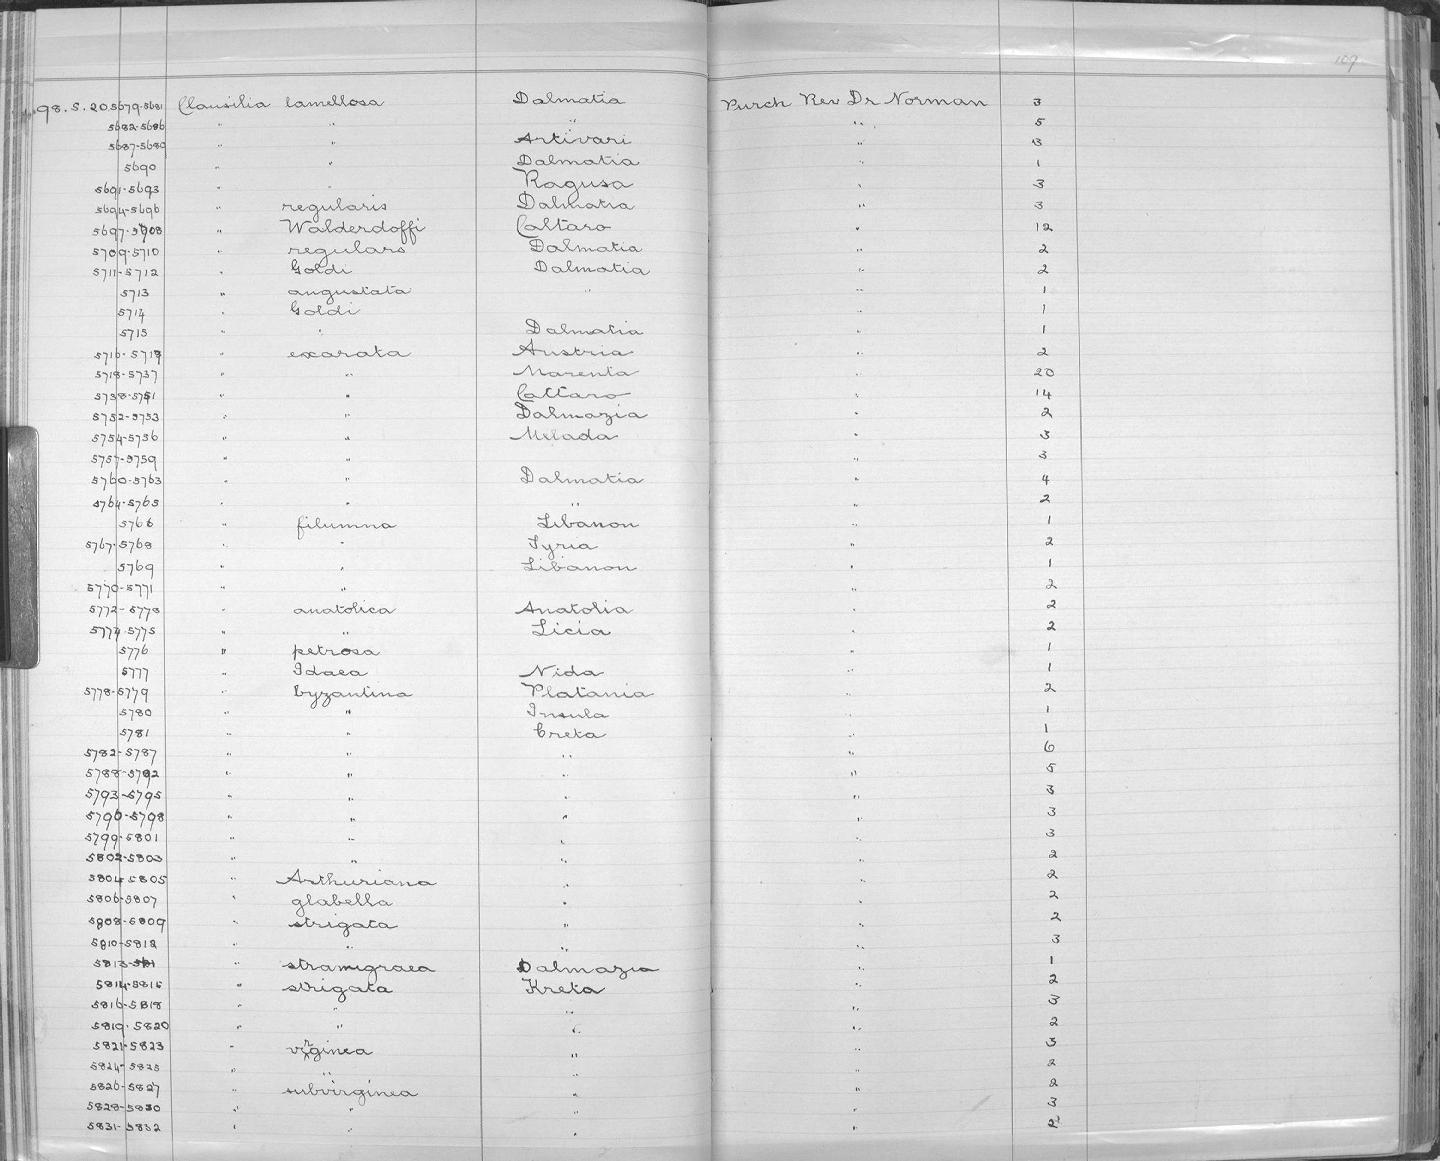 109
98.5.20.5679-5681 Clausilia lamellosa Dalmatia Purch Rev Dr Norman 3
5682-5686 " " " " 5
5687-5689 " " Artivari " 3
5690 " " Dalmatia " 1
5691-5693 " " Ragusa " 3
5694-5696 " regularis Dalmatia " 3
5697-5708 " Walderdoffi Cattaro " 12
5709-5710 " regularis Dalmatia " 2
5711-5712 " Goldi Dalmatia " 2
5713 " angustata " " 1
5714 " Goldi " 1
5715 " " Dalmatia " 1
5716-5717 " exarata Austria " 2
5718-5737 " " Marenta " 20
5738-5751 " " Cattaro " 14
5752-5753 " " Dalmazia " 2
5754-5756 " " Melada " 3
5757-5759 " " " 3
5760-5763 " " Dalmatia " 4
5764-5765 " " " " 2
5766 " filumna Libanon " 1
5767-5768 " " Syria " 2
5769 " " Libanon " 1
5770-5771 " " " 2
5772-5773 " anatolica Anatolia " 2
5774-5775 " " Licia " 2
5776 " petrosa " 1
5777 " Idaea Nida " 1
5778-5779 " byzantina Platania " 2
5780 " " Insula " 1
5781 " " Creta " 1
5782-5787 " " " " 6
5788-5792 " " " " 5
5793-5795 " " " " 3
5796-5798 " " " " 3
5799-5801 " " " " 3
5802-5803 " " " " 2
5804-5805 " Arthuriana " " 2
5806-5807 " glabella " " 2
5808-5809 " strigata " " 2
5810-5812 " " " " 3
5813 " stramigraea Dalmazia " 1
5814-5815 " strigata Kreta " 2
5816-5818 " " " " 3
5819-5820 " " " " 2
5821-5823 " virginea " " 3
5824-5825 " " " " 2
5826-5827 " subvirginea " " 2
5828-5830 " " " " 3
5831-5832 " " " " 2